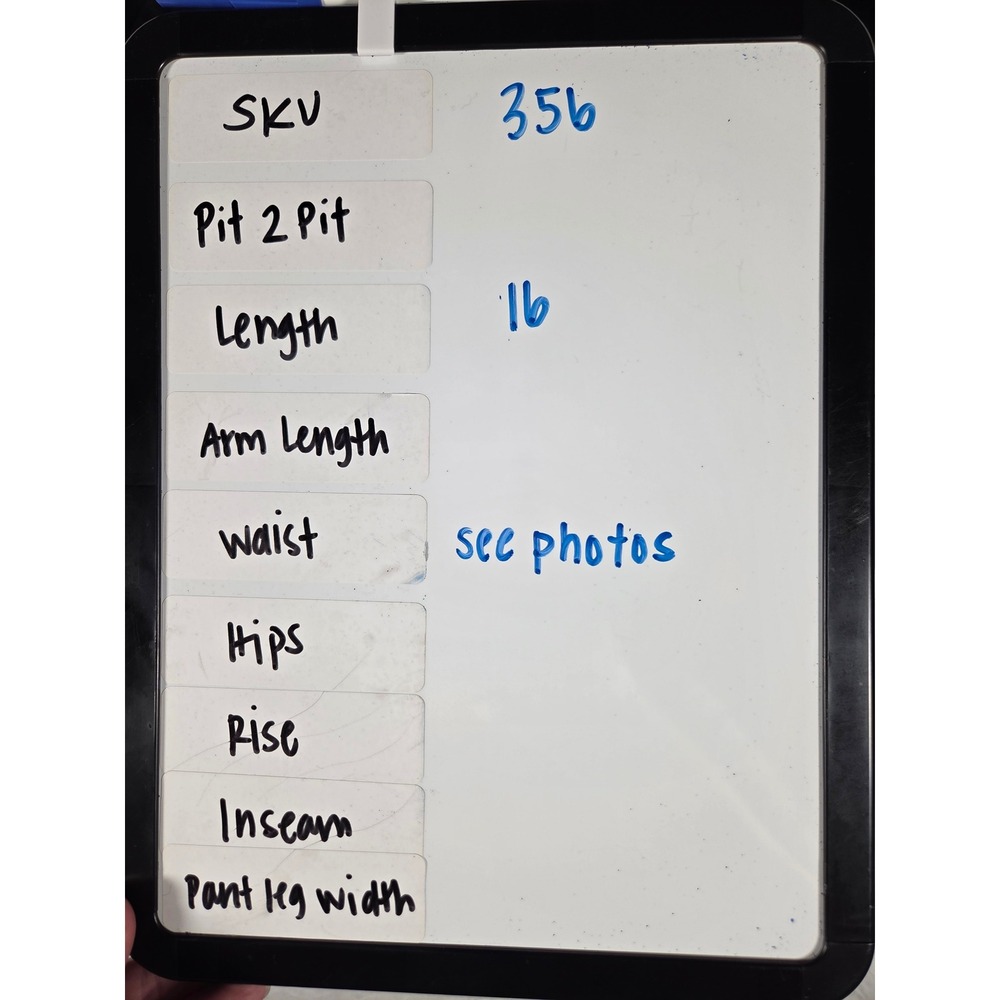 SKU 356
Pit 2 Pit
Length 16
Arm Length
Waist see photos
Hips
Rise
Inseam
Pant leg width